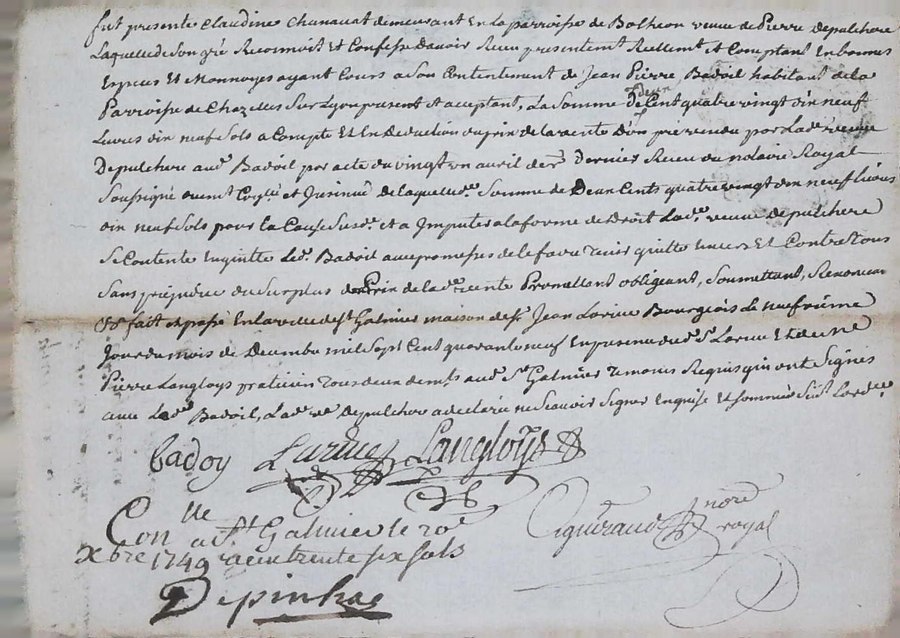 fut presente Claudine Chanavat demeurant En La parroisse de Botheon veuve de Pierre Depulchere
Laquelle de son gré Reconnoit Et Confesse davoir Receu presentemt Reellemt et Comptant En bonnes
Especes Et Monnoyes ayant Cours a son Contentement de Jean Pierre Badoil habitant de la
Parroisse de Chazelles Sur Lyon present et acceptant, La somme de deux Cent quatre vingt dix neuf
Livres dix neuf sols a Compte Et En Deduction du prix de la vente D'un pré vendu par Lade veuve
Depulchere aud. Badoil par acte du vingt un avril dernier Receu du notaire Royal
Soussigné Controllé et Jnsinué de laquelle de. Somme de Deux Cents quatre vingt dix neuf Livres
dix neuf sols pour la Cause susd. et a Jmputer a la forme de Droit Lade. veuve depulchere
Se Contente En quitte Led. Badoil avec promesses de le faire tenir quitte Envers Et Contre tous
Sans prejudice du Surplus du Prix de lade vente Promettant obligeant, Soumettant, Renoncan
fait et passé En la ville de St Galmier maison de Sr Jean Larive Bourgeois Le neufvième
Jour du mois de Decembre mil Sept Cent quarante neuf En presence dud. Sr Larive Et de
Pierre Langloys praticien tous deux demts aud. St Galmier temoins Requis qui ont Signés
avec Led. Badoil, Lade ve Depulchere a declaré ne Scavoir Signer Enquise Et sommée
badoy Larive Langloys
Conlle a St Galmier le 20e
Xbre 1749 Receu trente six sols
nore
royal
Depinhac